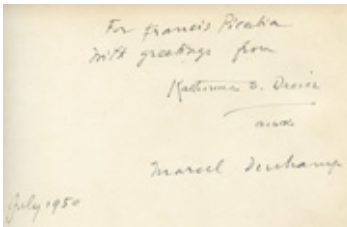 For Francis Picabia
With greetings from
Katherine S. Dreier
and
Marcel Duchamp
July 1950